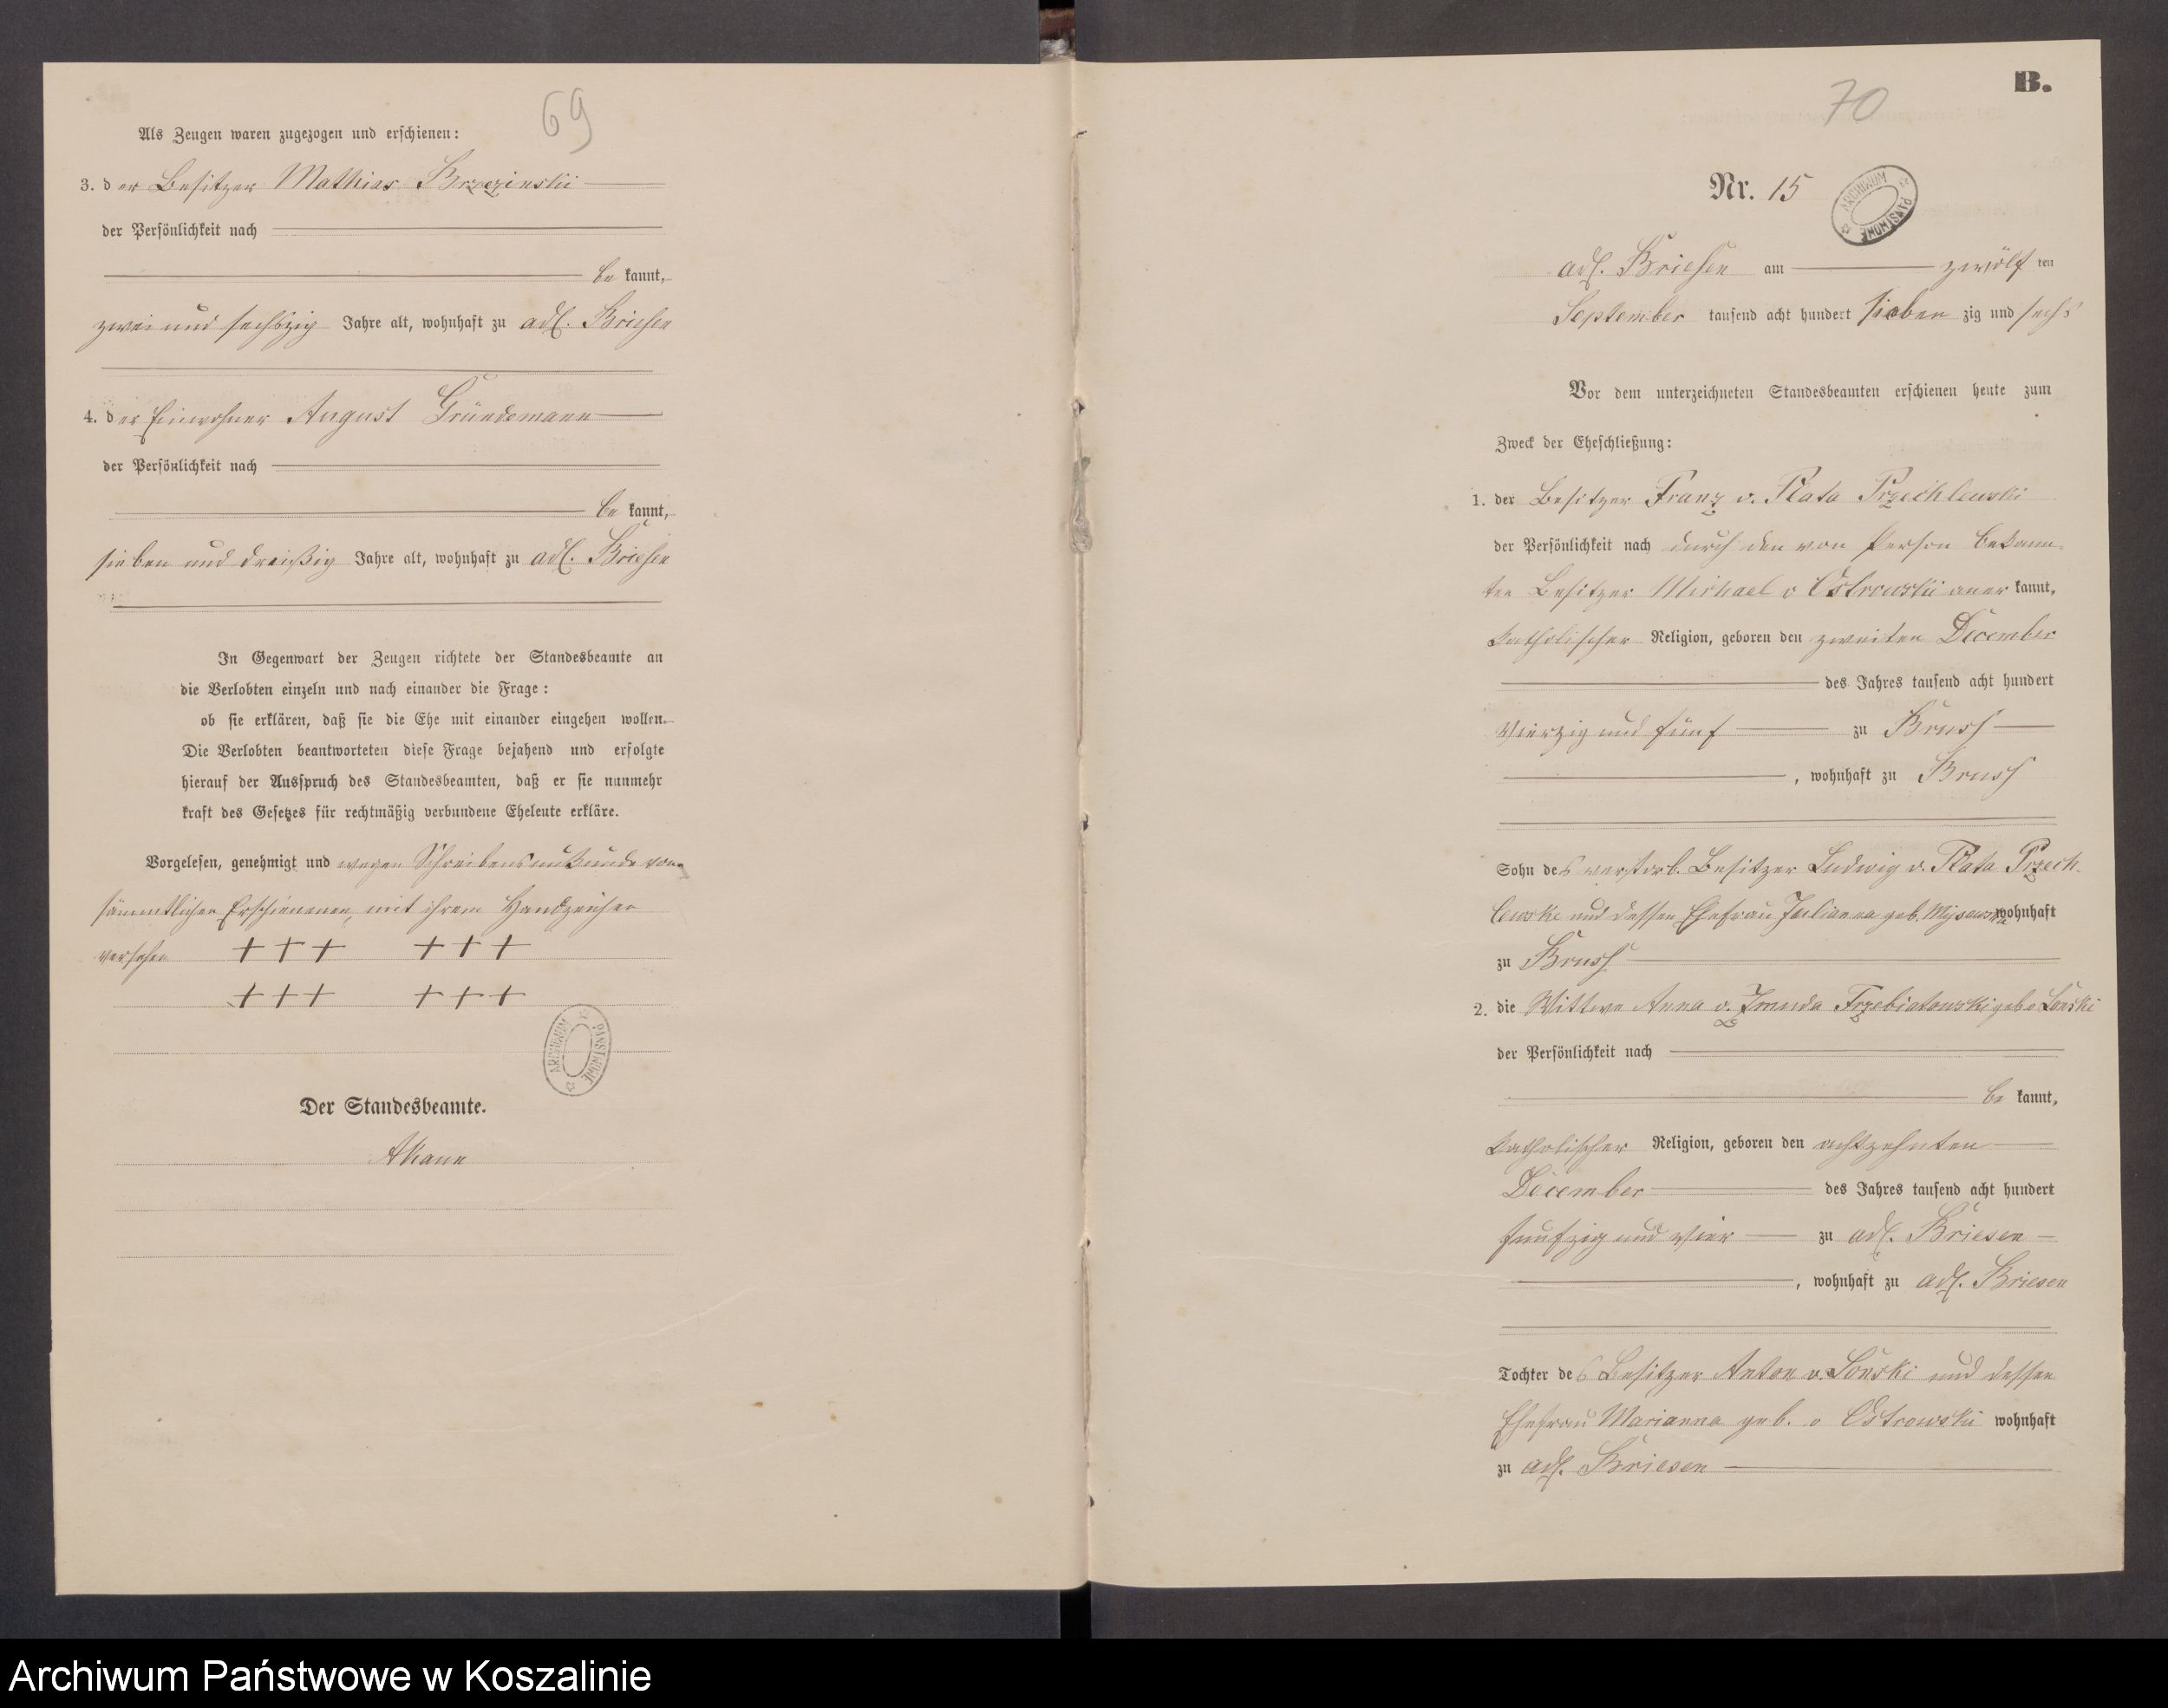 69
Als Zeugen waren zugezogen und erschienen:
3. der Besitzer Mathias Brzezinski
der Persönlichkeit nach
bekannt,
zwei und sechszig Jahre alt, wohnhaft zu adl. Briesen
4. der Einwohner August Gründemann
der Persönlichkeit nach
bekannt,
sieben und dreißig Jahre alt, wohnhaft zu adl. Briesen
In Gegenwart der Zeugen richtete der Standesbeamte an
die Verlobten einzeln und nach einander die Frage:
ob sie erklären, daß sie die Ehe mit einander eingehen wollen.
Die Verlobten beantworteten diese Frage bejahend und erfolgte
hierauf der Ausspruch des Standesbeamten, daß er sie nunmehr
kraft des Gesetzes für rechtmäßig verbundene Eheleute erkläre.
Vorgelesen, genehmigt und wegen Schreibensunkunde von
sämmtlichen Erschienenen, mit ihrem Handzeichen
versehen +++ +++
+++ +++
ARCHIWUM PAŃSTWOWE
Der Standesbeamte.
B.
70
Nr. 15
ARCHIWUM PAŃSTWOWE
adl. Briesen am zwölften
September tausend acht hundert siebenzig und sechs
Vor dem unterzeichneten Standesbeamten erschienen heute zum
Zweck der Eheschließung:
1. der Besitzer Franz v. Przechlewski
der Persönlichkeit nach durch den von Person bekann-
ten Besitzer Michael v Ostrowski anerkannt,
katholischer Religion, geboren den zweiten December
des Jahres tausend acht hundert
vierzig und fünf zu Bruss
, wohnhaft zu Bruss
Sohn des verstorb. Besitzer Ludwig v. Przech-
lewski und dessen Ehefrau Julianna geb. wohnhaft
zu Bruss
2. die Wittwe Anna v. Trzebiatowski geb v Lonski
der Persönlichkeit nach
bekannt,
katholischer Religion, geboren den achtzehnten
December des Jahres tausend acht hundert
funfzig und vier zu adl. Briesen
, wohnhaft zu adl. Briesen
Tochter des Besitzer Anton v. Lonski und dessen
Ehefrau Marianna geb. v Ostrowski wohnhaft
zu adl. Briesen
Archiwum Państwowe w Koszalinie